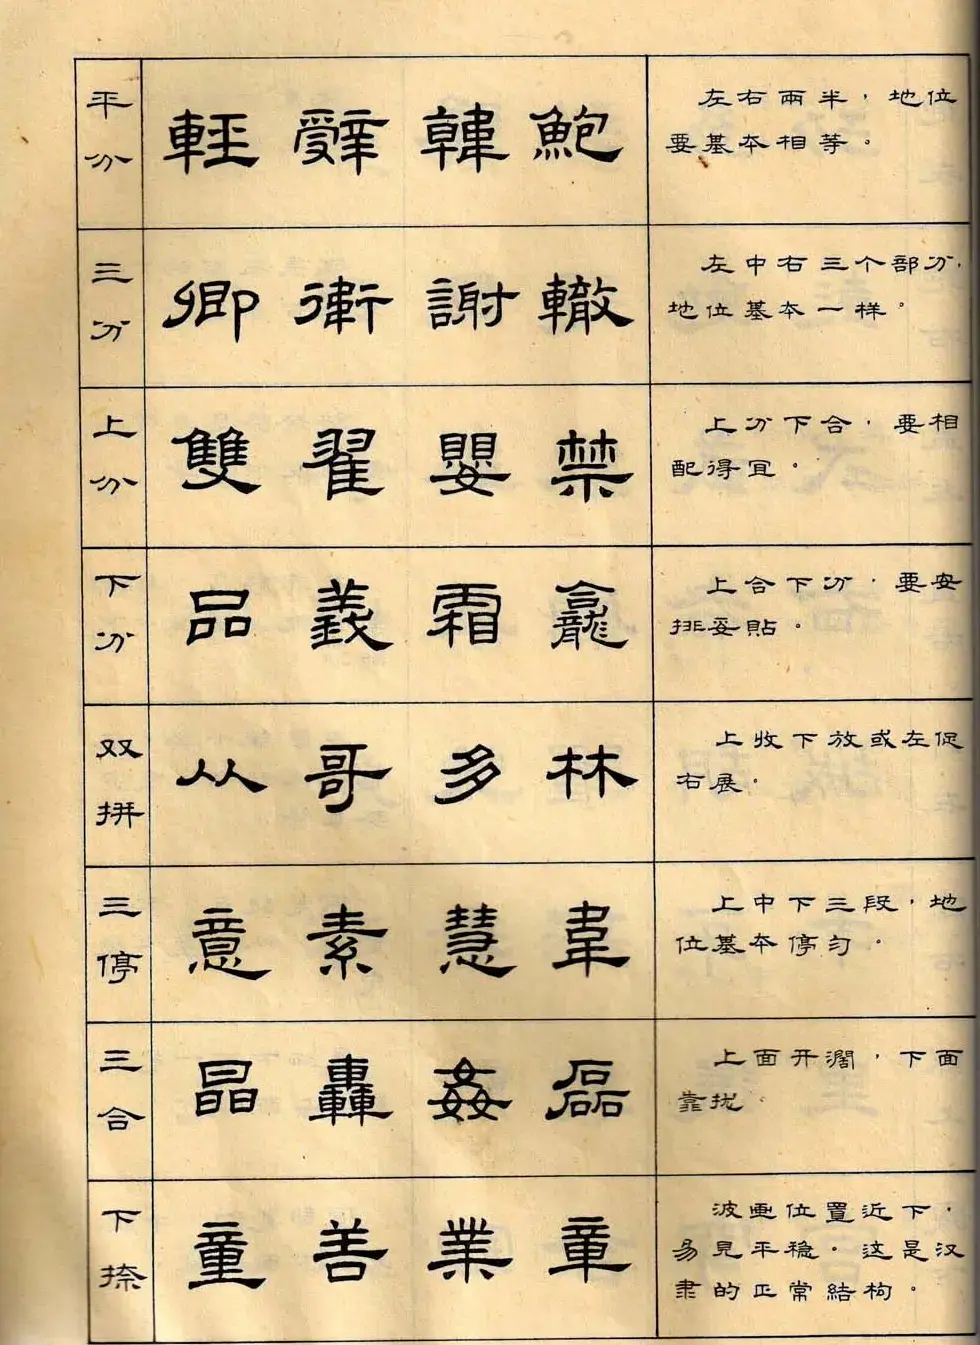 平分
輕 辭 韓 鮑
左右兩半，地位
要基本相等。
三分
卿 衛 謝 轍
左中右三个部分，
地位基本一样。
上分
雙 翟 嬰 禁
上分下合，要相
配得宜。
下分
品 義 霜 龕
上合下分，要安
排妥貼。
双拼
从 哥 多 林
上收下放或左促
右展。
三停
意 素 慧 韋
上中下三段，地
位基本停匀。
三合
晶 轟 姦 磊
上面开濶，下面
靠拢。
下捺
童 善 業 章
波画位置近下，
易見平稳。这是汉
隶的正常結构。